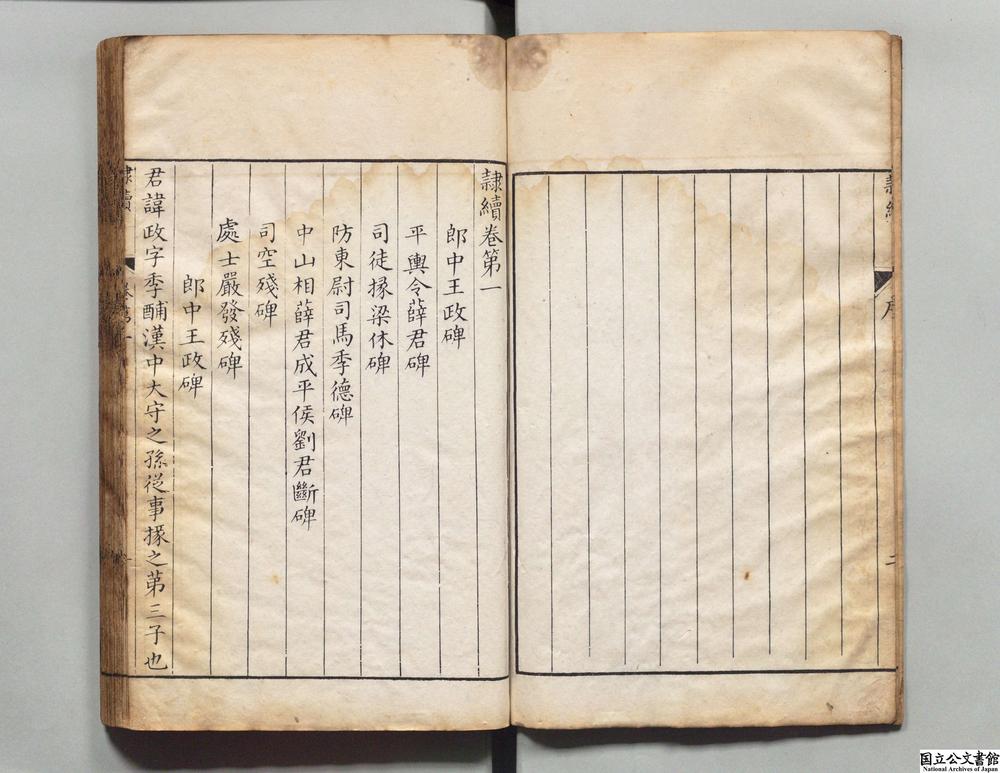 隷續卷第一
郎中王政碑
平輿令薛君碑
司徒掾梁休碑
防東尉司馬季德碑
中山相薛君成平侯劉君斷碑
司空殘碑
處士嚴發殘碑
郎中王政碑
君諱政字季酺漢中大守之孫從事掾之苐三子也
隷續
卷第一
国立公文書館
National Archives of Japan